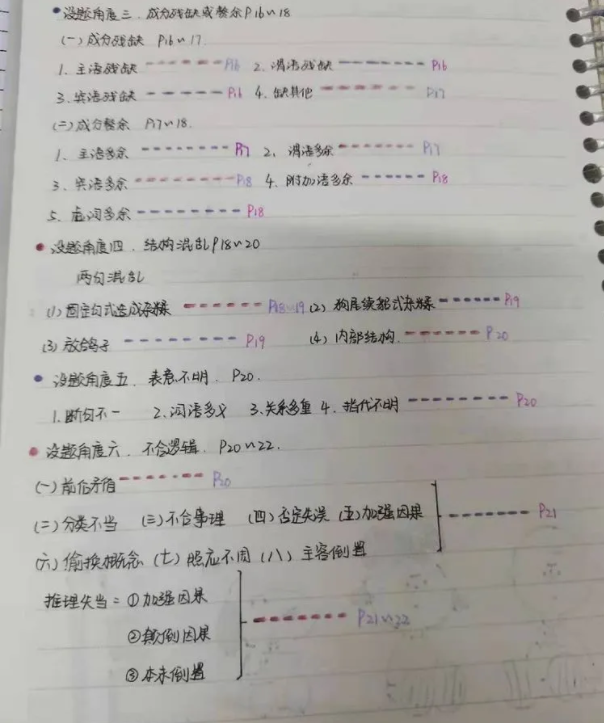 设题角度三．成分残缺或赘余P16~18
(一)成分残缺 P16~17
1. 主语残缺 ------ P16 2. 谓语残缺 ------ P16
3. 宾语残缺 ------ P16 4. 缺其他 ------ P17
(二)成分赘余 P17~18.
1. 主语多余 ------ P17 2. 谓语多余 ------ P17
3. 宾语多余 ------ P18 4. 附加语多余 ------ P18
5. 虚词多余 ------ P18
设题角度四．结构混乱P18~20
两句混乱
(1)固定句式造成杂糅 ------ P18~19 (2)狗尾续貂式杂糅 ------ P19
(3)放鸽子 ------ P19 (4)内部结构. ------ P20
设题角度五．表意不明．P20.
1.断句不一 2.词语多义 3.关系多重 4.指代不明 ------ P20
设题角度六．不合逻辑．P20~22.
(一)前后矛盾 ------ P20
(二)分类不当 (三)不合事理 (四)否定失误 (五)加强因果 ------ P21
(六)偷换概念 (七)照应不周 (八)主客倒置
推理失当：①加强因果
②颠倒因果 ------ P21~22
③本末倒置